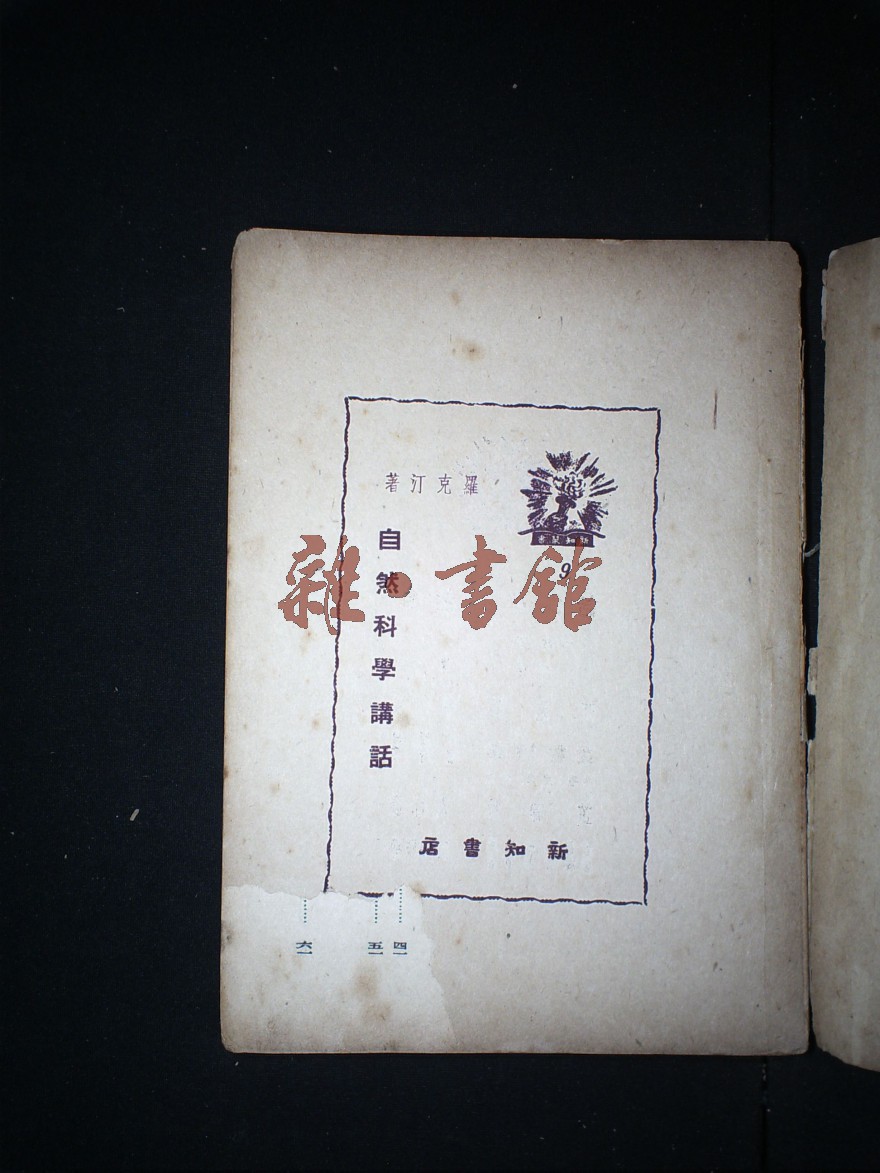 羅克汀著
9
自然科學講話
新知書店
四一
五一
六一
雜·書館